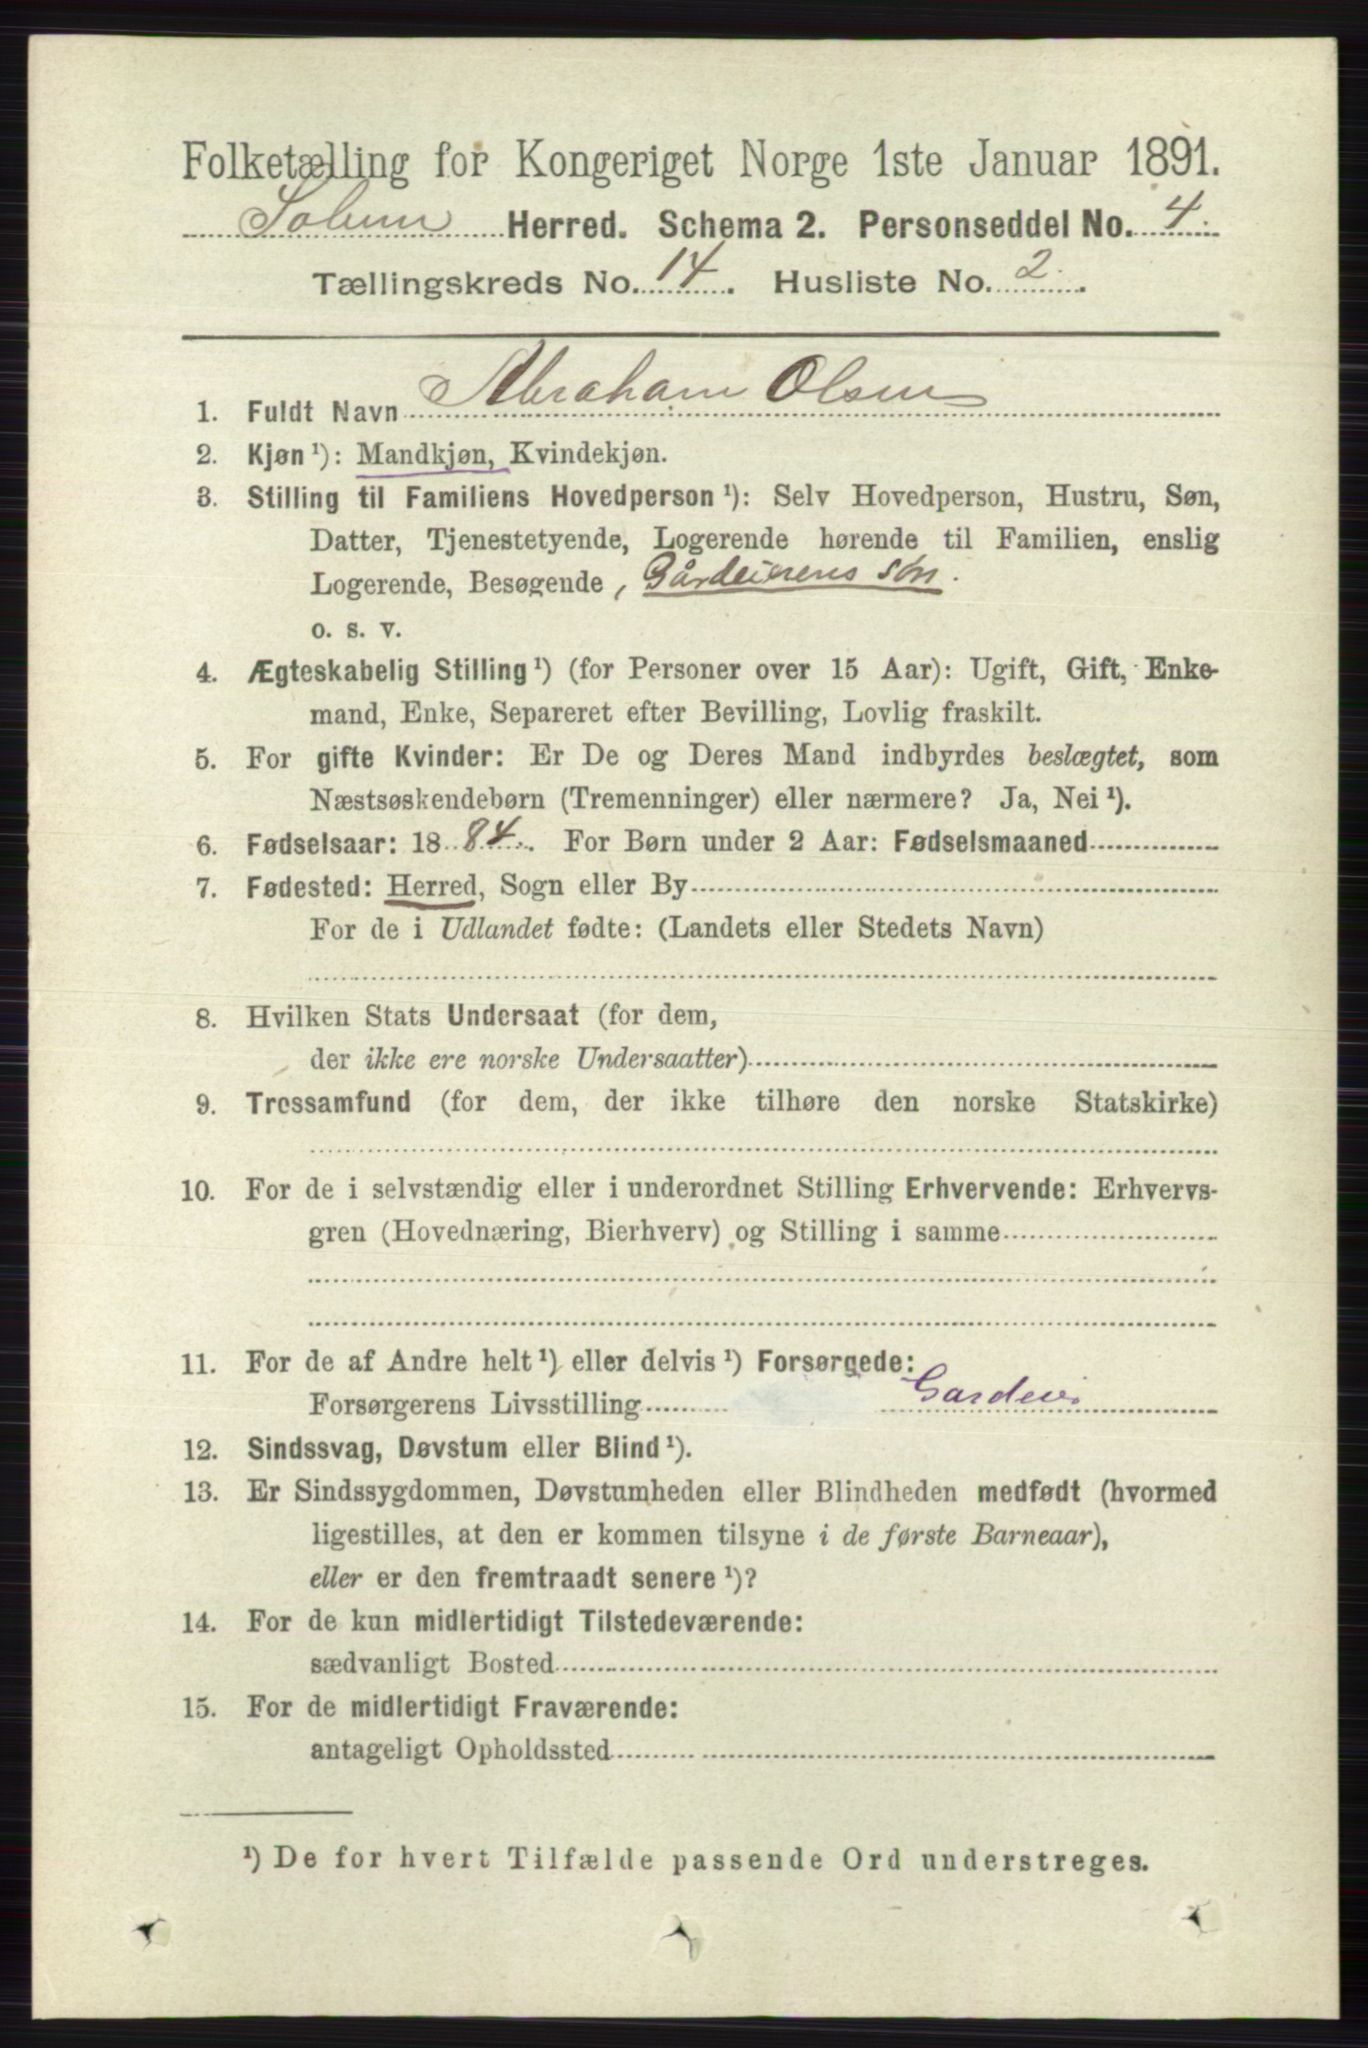 Folketælling for Kongeriget Norge 1ste Januar 1891.
Solum Herred. Schema 2. Personseddel No. 4.
Tællingskreds No. 14. Husliste No. 2.
1. Fuldt Navn Abraham Olsen
2. Kjøn ¹): Mandkjøn, Kvindekjøn.
3. Stilling til Familiens Hovedperson ¹): Selv Hovedperson, Hustru, Søn,
Datter, Tjenestetyende, Logerende hørende til Familien, enslig
Logerende, Besøgende, Gårdeierens søn.
o. s. v.
4. Ægteskabelig Stilling ¹) (for Personer over 15 Aar): Ugift, Gift, Enke-
mand, Enke, Separeret efter Bevilling, Lovlig fraskilt.
5. For gifte Kvinder: Er De og Deres Mand indbyrdes beslægtet, som
Næstsøskendebørn (Tremenninger) eller nærmere? Ja, Nei ¹).
6. Fødselsaar: 1884. For Børn under 2 Aar: Fødselsmaaned
7. Fødested: Herred, Sogn eller By
For de i Udlandet fødte: (Landets eller Stedets Navn)
8. Hvilken Stats Undersaat (for dem,
der ikke ere norske Undersaatter)
9. Trossamfund (for dem, der ikke tilhøre den norske Statskirke)
10. For de i selvstændig eller i underordnet Stilling Erhvervende: Erhvervs-
gren (Hovednæring, Bierhverv) og Stilling i samme
11. For de af Andre helt ¹) eller delvis ¹) Forsørgede:
Forsørgerens Livsstilling Gardeier
12. Sindssvag, Døvstum eller Blind ¹).
13. Er Sindssygdommen, Døvstumheden eller Blindheden medfødt (hvormed
ligestilles, at den er kommen tilsyne i de første Barneaar),
eller er den fremtraadt senere ¹)?
14. For de kun midlertidigt Tilstedeværende:
sædvanligt Bosted
15. For de midlertidigt Fraværende:
antageligt Opholdssted
¹) De for hvert Tilfælde passende Ord understreges.